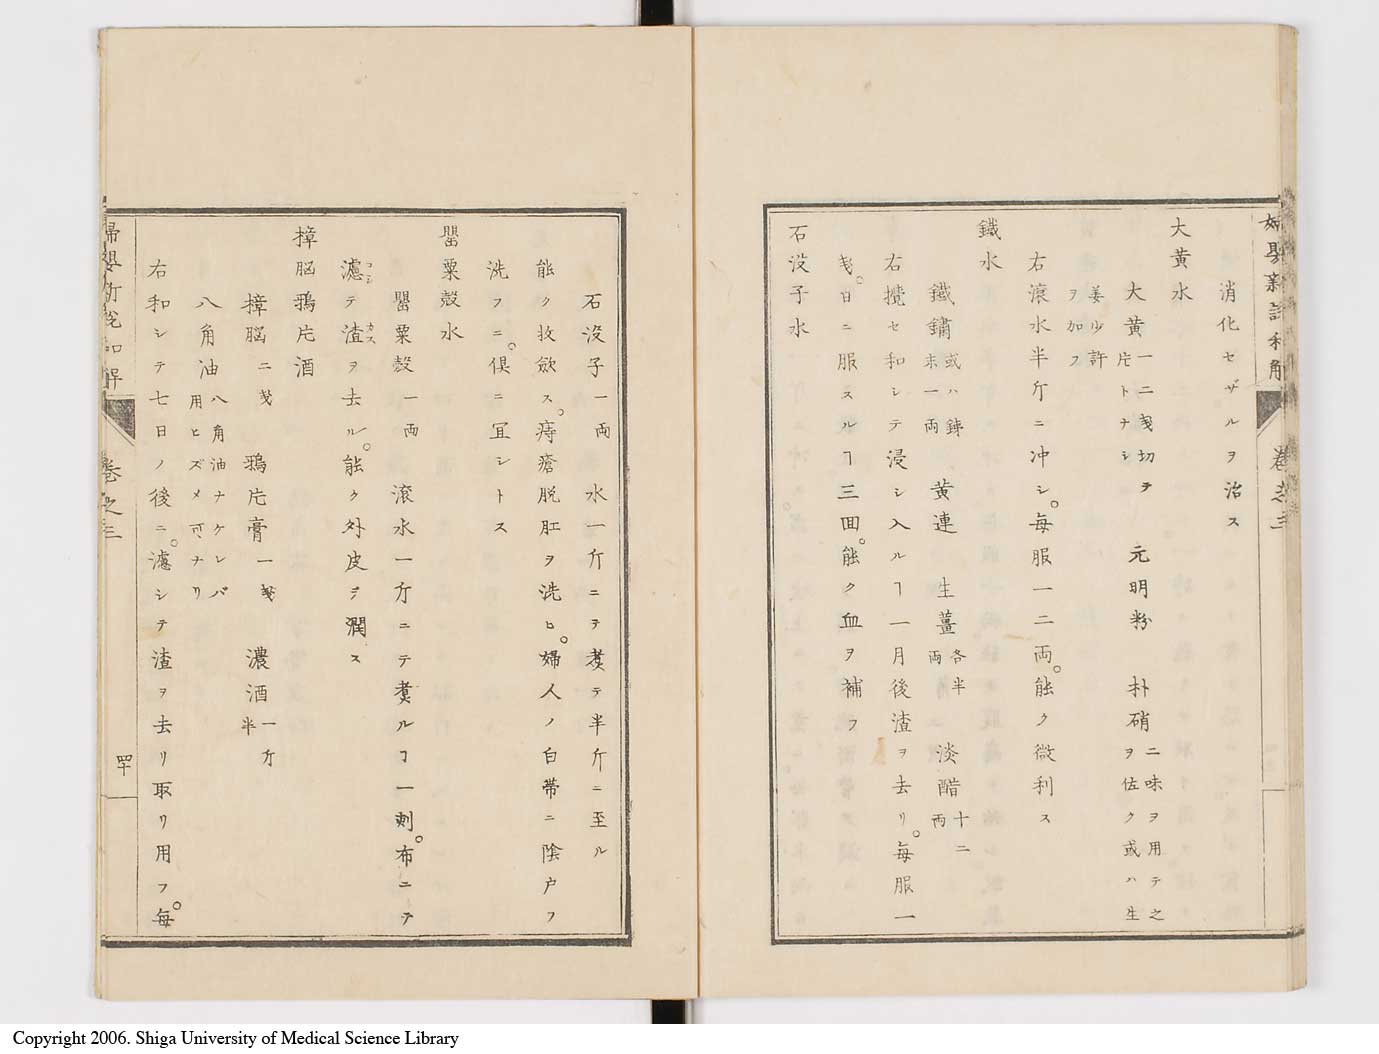 婦嬰新説和解
卷之三
消化セザルヲ治ス
大黄水
大黄一二戔切ヲ片トナシ 元明粉 朴硝二味ヲ用テ之ヲ佐ク或ハ生
姜少許ヲ加フ
右滾水半斤ニ冲シ。毎服一二両。能ク微利ス
鐵水
鐵鏽或ハ銕末一両 黄連 生薑各半両 淡醋十二両
右攪セ和シテ浸シ入ルヿ一月後渣ヲ去リ。毎服一
戔。日ニ服スルヿ三回。能ク血ヲ補フ
石没子水
石没子一両 水一斤ニヲ煑テ半斤ニ至ル
能ク收斂ス。痔瘡脱肛ヲ洗ヒ。婦人ノ白帯ニ陰戸フ
洗フニ。倶ニ冝シトス
罌粟殻水
罌粟殻一両 滾水一斤ニテ煑ルヿ一刺。布ニテ
濾テ渣ヲ去ル。能ク外皮ヲ潤ス
コシ カス
樟脳鴉片酒
樟脳二戔 鴉片膏一戔 濃酒一斤半
八角油八角油ナケレバ用ヒズメ可ナリ
右和シテ七日ノ後ニ。濾シテ渣ヲ去リ取リ用フ。毎
婦嬰新説和解
卷之三
四十
Copyright 2006. Shiga University of Medical Science Library